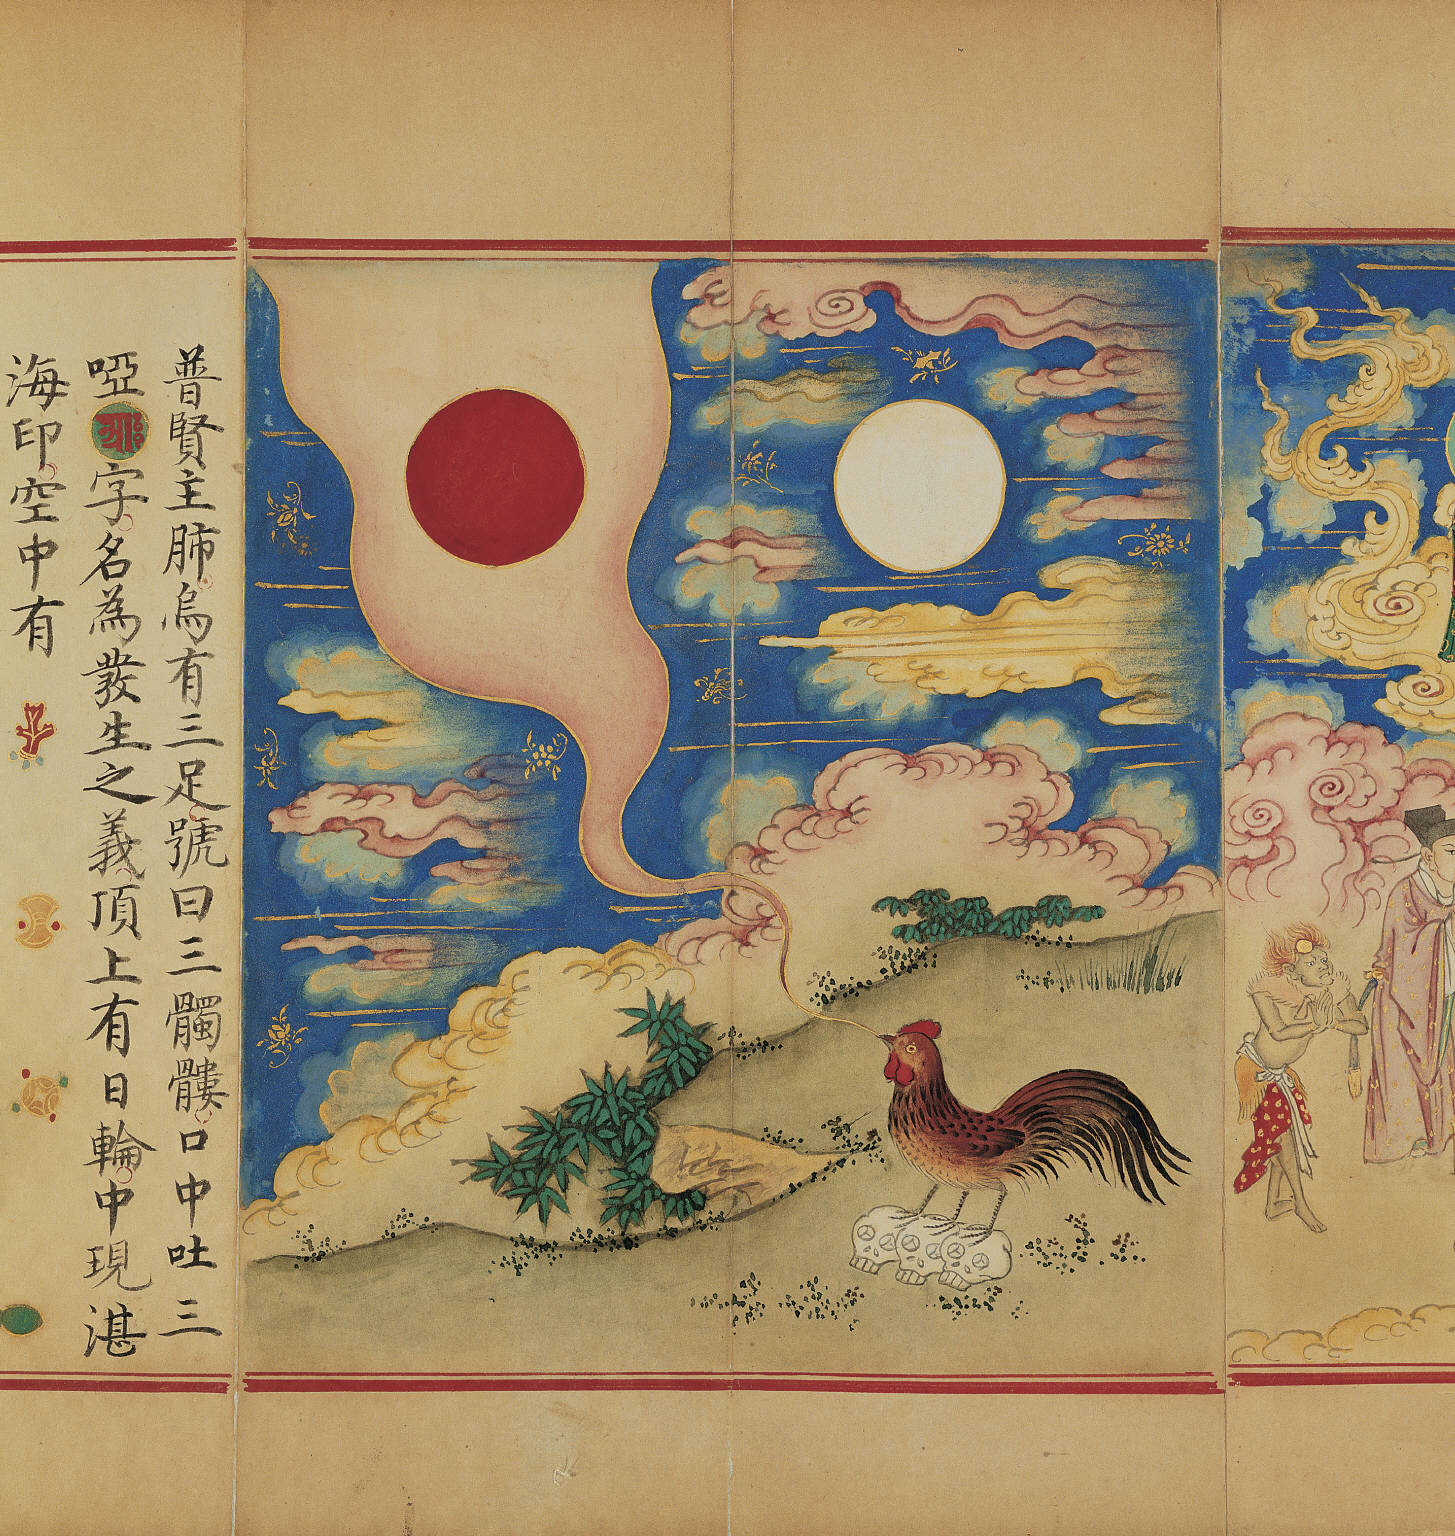 普賢主肺烏有三足號曰三髑髏口中吐三
啞字名為發生之義頂上有日輪中現湛
海印空中有